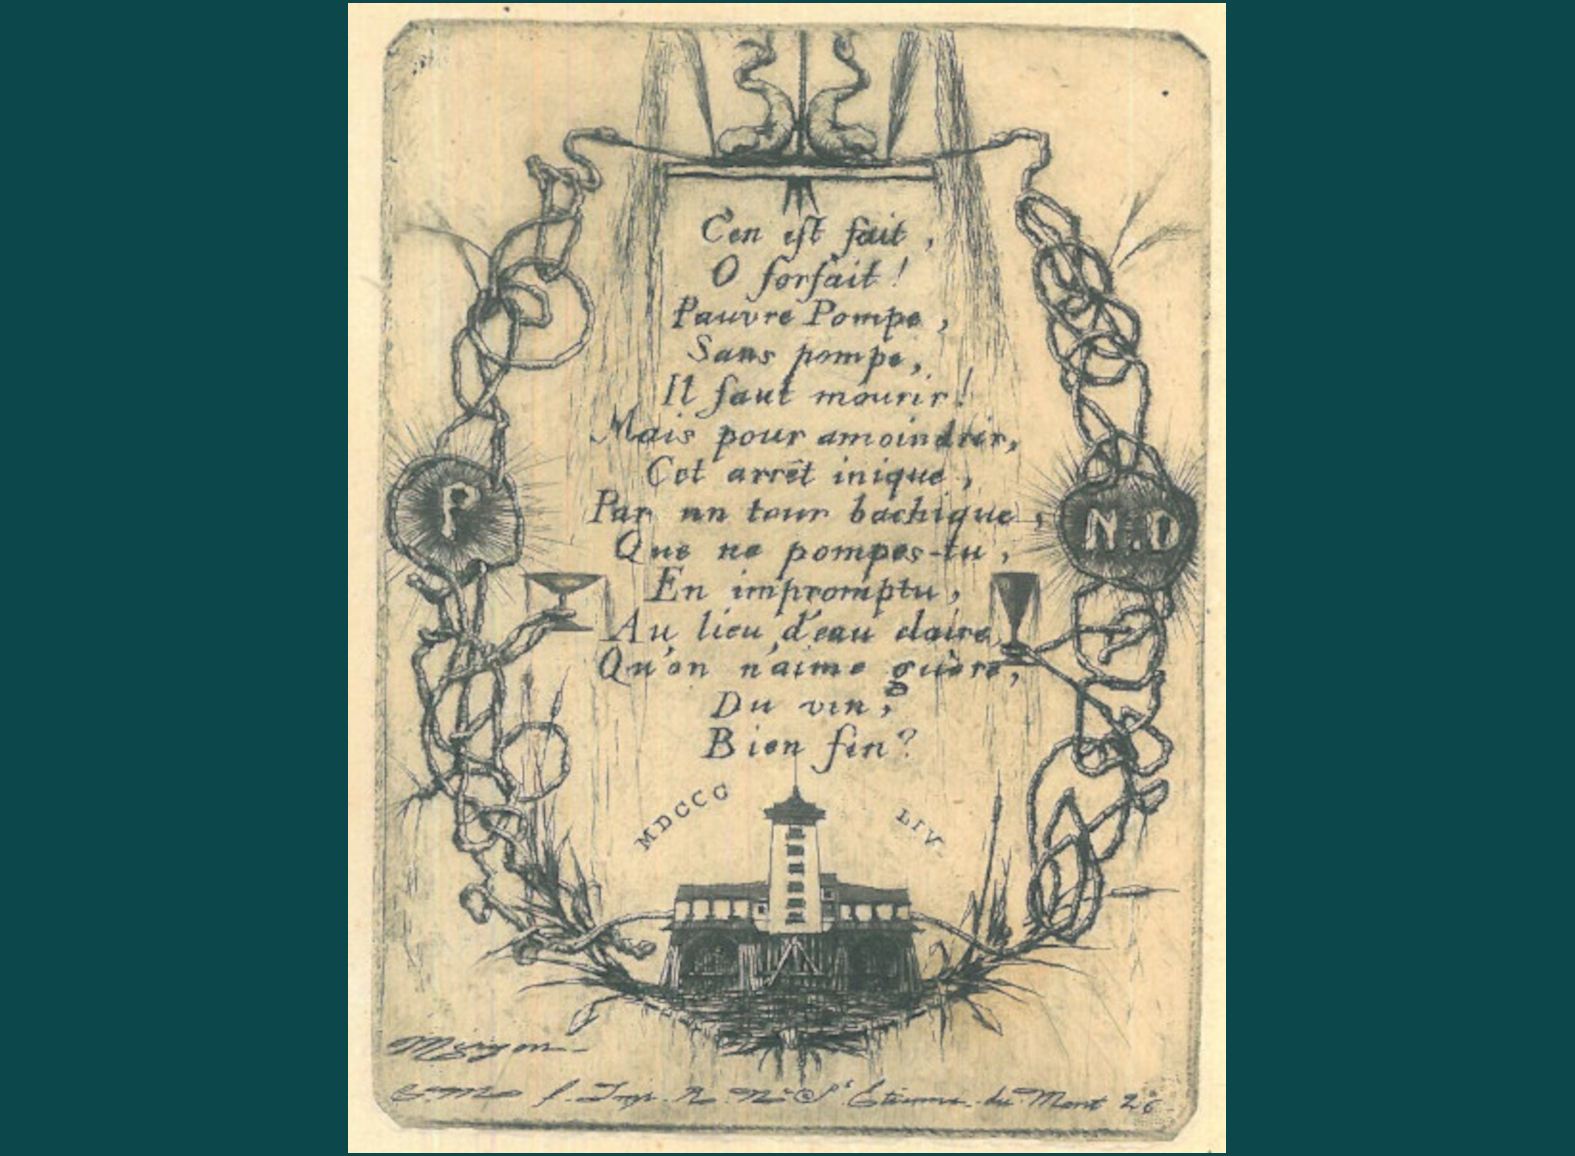 C'en est fait,
O forfait!
Pauvre Pompe,
Sans pompe,
Il faut mourir!
Mais pour amoindrir,
Cet arrêt inique,
Par un tour bachique,
Que ne pompes-tu,
En impromptu,
Au lieu d'eau claire,
Qu'on n'aime guère,
Du vin,
Bien fin?
P
N.D
MDCCC LIV
Meryon
Etienne du Mont 26